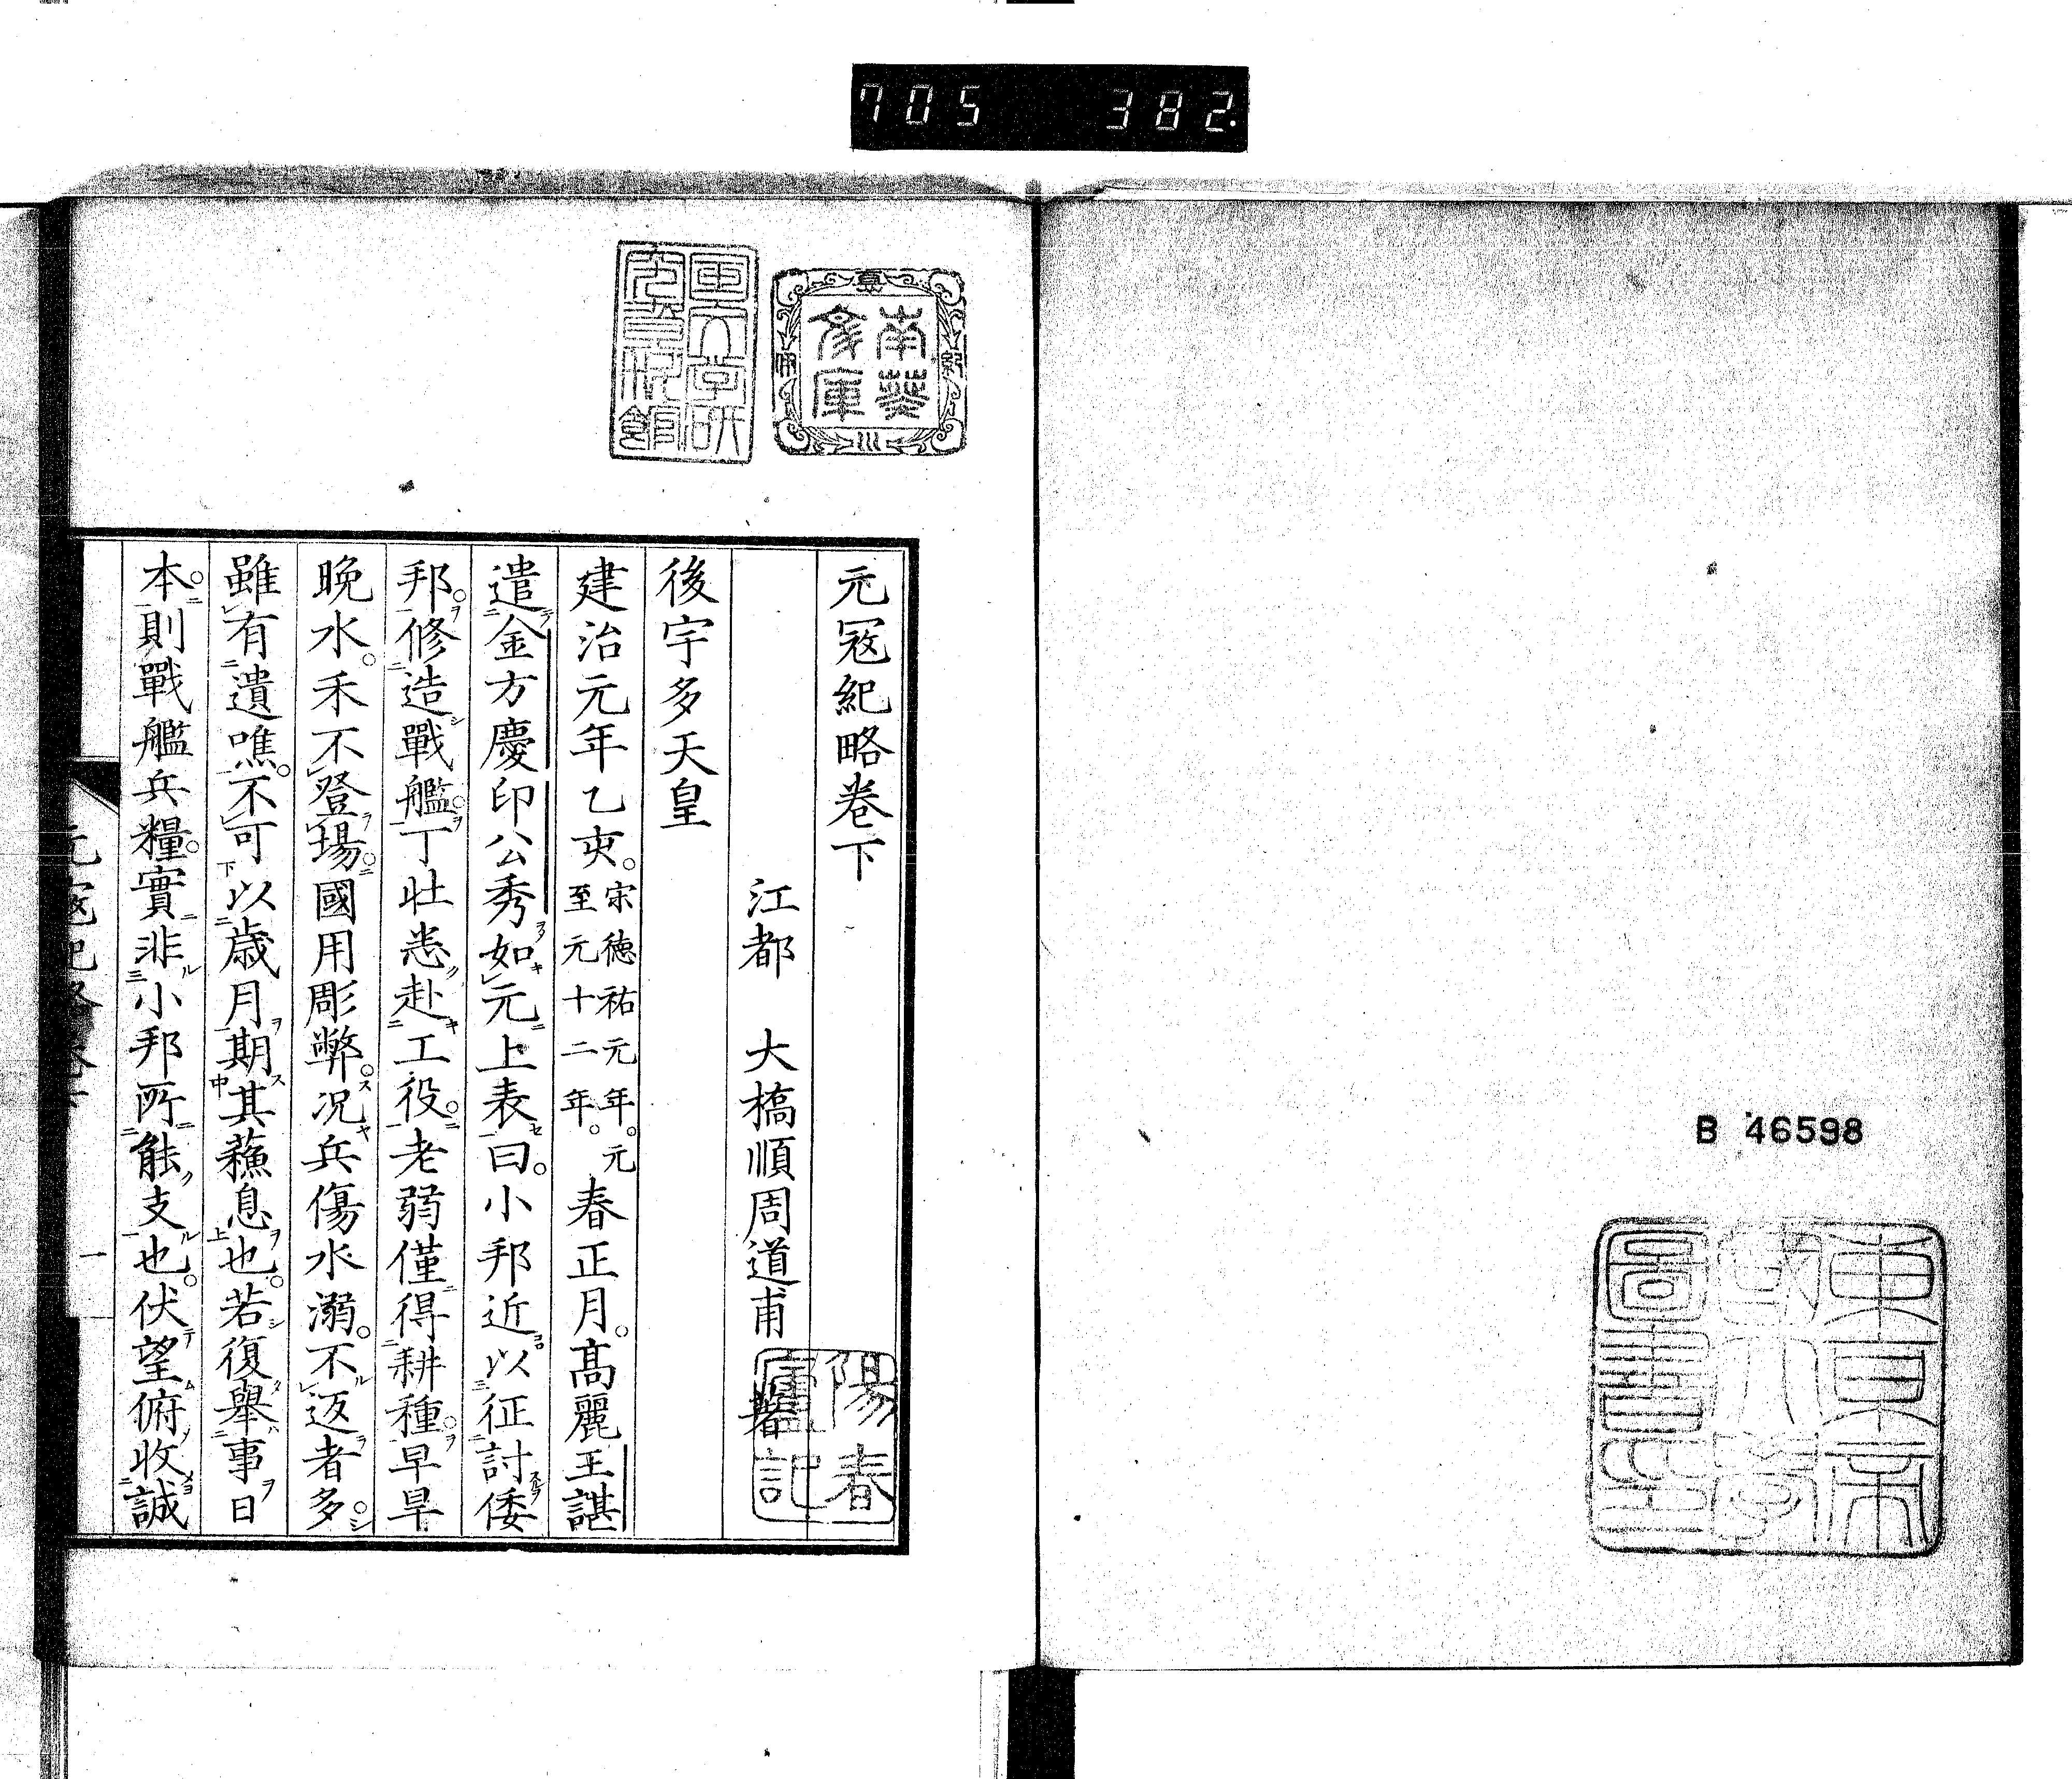 705 382
B 46598
東京帝
國大學
圖書印
南葵
文庫
陽春
廬記
元冦紀略卷下
江都 大橋順周道甫 著
後宇多天皇
建治元年乙亥。宋德祐元年。元至元十二年。春正月。高麗王諶
遣金方慶印公秀如元上表曰。小邦近以征討倭
邦。修造戰艦。丁壯悉赴工役。老弱僅得耕種。早旱
晚水。禾不登場。國用彫弊。况兵傷水溺。不返者多。
雖有遺噍。不可以歳月期其蘓息也。若復舉事日
本。則戰艦兵糧。實非小邦所能支也。伏望俯收誠
元冦紀略卷下 一